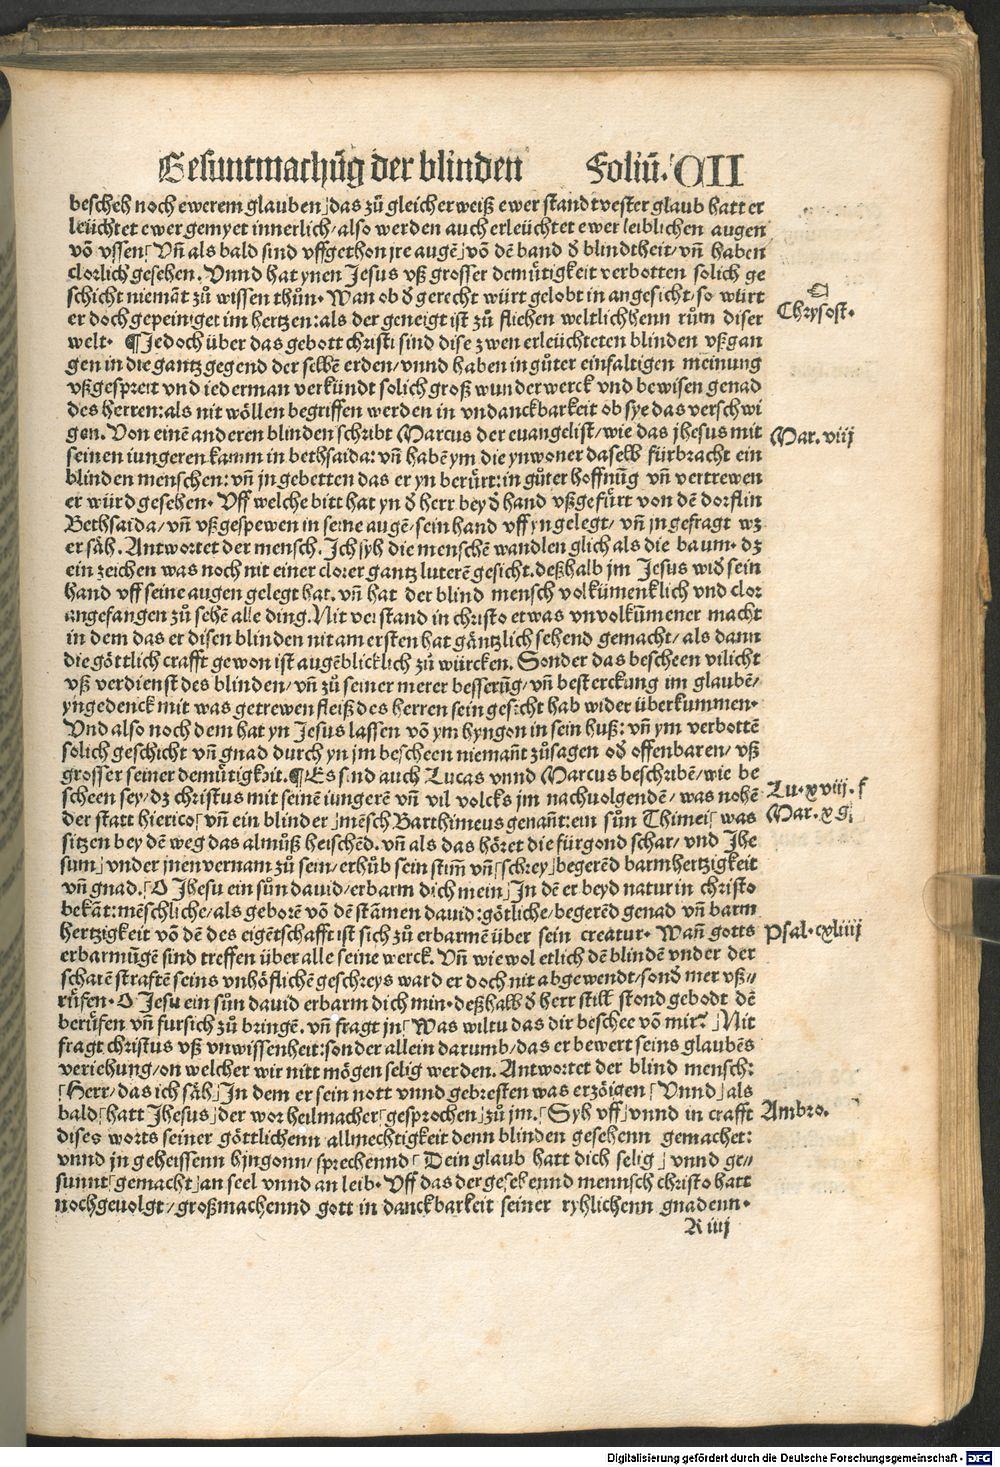 Gesuntmachūg der blinden Foliū. CII
bescheh noch ewerem glauben⌋das zů gleicher weiß ewer standtvester glaub hatt er
leüchtet ewer gemyet innerlich/also werden auch erleüchtet ewer leiblichen augen
vō vssen⌈Vn̄ als bald sind vffgethon jre augē⌋vō dē band d̕ blindtheit/vn̄ haben
clorlich gesehen. Vnnd hat ynen Jesus vß grosser demütigkeit verbotten solich ge
schicht niemāt zů wissen thůn. Wan ob d̕ gerecht würt gelobt in angesicht/so würt
er doch gepeiniget im hertzen:als der geneigt ist zů fliehen weltlichhenn rům diser
Chrysost.
welt. ¶Jedoch über das gebott christi sind dise zwen erleüchteten blinden vßgan
gen in die gantz gegend der selbē erden/vnnd haben in gůter einfaltigen meinung
vßgespreit vnd iederman verkündt solich groß wunderwerck vnd bewisen genad
des herren:als nit wöllen begriffen werden in vndanckbarkeit ob sye das verschwi
gen. Von einē anderen blinden schribt Marcus der euangelist/wie das jhesus mit
Mar. viij
seinen iungeren kamm in bethsaida: vn̄ habē ym die ynwoner daselb fürbracht ein
blinden menschen: vn̄ jn gebetten das er yn berürt: in gůter hoffnūg vn̄ vertrewen
er würd gesehen. Vff welche bitt hat yn d̕ herr bey d̕ hand vßgefürt von dē dorflin
Bethsaida/vn̄ vßgespewen in seine augē/sein hand vff yn gelegt/vn̄ jn gefragt wz
er säh. Antwortet der mensch. Ich syh die menschē wandlen glich als die baum. dz
ein zeichen was noch nit einer clorer gantz luterē gesicht. deßhalb jm Jesus wid̕ sein
hand vff seine augen gelegt hat. vn̄ hat der blind mensch volkümenklich vnd clor
angefangen zů sehē alle ding. Nit verstand in christo etwas vnvolkūmener macht
in dem das er disen blinden nit am ersten hat gäntzlich sehend gemacht/als dann
die göttlich crafft gewon ist augēblicklich zů würcken. Sonder das bescheen vilicht
vß verdienst des blinden/vn̄ zů seiner merer besserūg/vn̄ besterckung im glaubē/
yngedenck mit was getrewen fleiß des herren sein gesicht hab wider überkummen.
Vnd also noch dem hat yn Jesus lassen vō ym hyngon in sein huß: vn̄ ym verbottē
solich geschicht vn̄ gnad durch yn jm bescheen niemant̄ zůsagen od̕ offenbaren/vß
grosser seiner demütigkeit.¶Es sind auch Lucas vnnd Marcus beschribē/wie be
scheen sey/dz christus mit seinē iungerē vn̄ vil volcks jm nachuolgendē/was nohē
Lu. xviij. f
der statt hierico⌈vn̄ ein blinder⌋mēsch Barthimeus genan̄t:ein sůn Thimei⌈was
Mar. x g
sitzen bey dē weg das almůß heischēd. vn̄ als das höret die fürgond schar/vnd Jhe
sum⌋vnder jnen vernam zů sein/erhůb sein stim̄ vn̄⌈schrey⌋begerēd barmhertzigkeit
vn̄ gnad.⌈O Jhesu ein sůn dauid/erbarm dich mein⌋In dē er beyd natur in christo
bekāt:mēschliche/als geborē vō dē stāmen dauid:götliche/begerēd genad vn̄ barm
hertzigkeit vō dē des eigētschafft ist sich zů erbarmē über sein creatur. Wan̄ gotts
Psal. cxliiij
erbarmūgē sind treffen über alle seine werck. Vn̄ wiewol etlich dē blindē vnder der
scharē straftē seins vnhöflichē geschreys ward er doch nit abgewendt/sond̕ mer vß//
rüfen. O Jesu ein sůn dauid erbarm dich min. deßhalb d̕ herr still stond gebodt dē
berüfen vn̄ fursich zů bringē. vn̄ fragt jn⌈Was wiltu das dir beschee vō mir?⌋Nit
fragt christus vß vnwissenheit:sonder allein darumb/das er bewert seins glaubēs
veriehung/on welcher wir nitt mögen selig werden. Antwortet der blind mensch:
⌈Herr/das ich säh⌋In dem er sein nott vnnd gebresten was erzöigen⌈Vnnd⌋als
bald⌈hatt Jhesus⌋der wor heilmacher⌈gesprochen⌋zů jm.⌈Syh vff⌋vnnd in crafft
Ambro.
dises worts seiner göttlichenn allmechtigkeit denn blinden gesehenn gemachet:
vnnd jn geheissenn hjngonn/sprechennd⌈Dein glaub hatt dich selig⌋vnnd ge/
sunnt⌈gemacht⌋an seel vnnd an leib. Vff das der gesehennd mennsch christo hatt
nochgeuolgt/großmachennd gott in danckbarkeit seiner ryhlichenn gnadenn.
R iiij
Digitalisierung gefördert durch die Deutsche Forschungsgemeinschaft - DFG